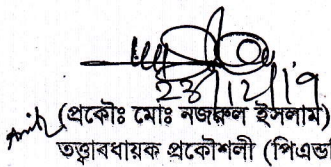 (প্রকৌঃ মোঃ নজরুল ইসলাম)
তত্ত্বাবধায়ক প্রকৌশলী (পিএন্ড